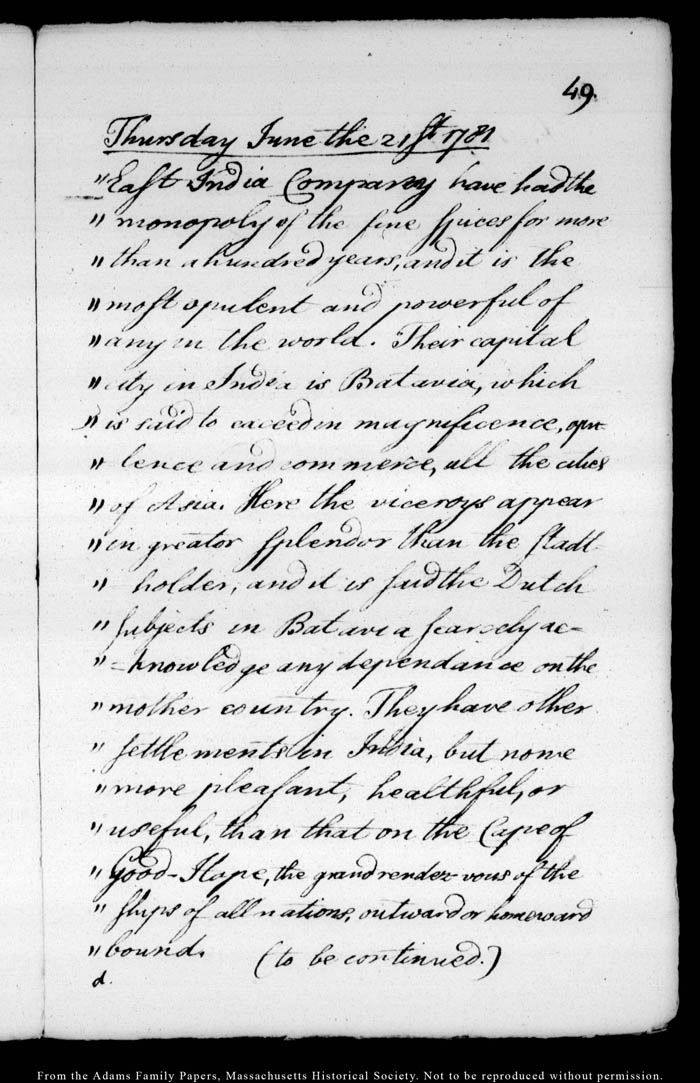 49.
Thursday June the 21st 1781
" East India Company have had the
" monopoly of the fine spices for more
" than a hundred years, and it is the
" most opulent and powerful of
" any in the world. Their capital
" city in India is Batavia, which
" is said to exceed in magnificence, opu-
" lence and commerce, all the cities
" of Asia. Here the viceroys appear
" in greator splendor than the stadt-
" holder, and it is said the Dutch
" subjects in Batavia scarcely ac=
" =knowledge any dependance on the
" mother country. They have other
" settlements in India, but none
" more pleasant, healthful, or
" useful, than that on the Cape of
" Good-Hope, the grand rendez-vous of the
" ships of all nations, outward or homeward
" bound. (to be continued.)
d.
From the Adams Family Papers, Massachusetts Historical Society. Not to be reproduced without permission.